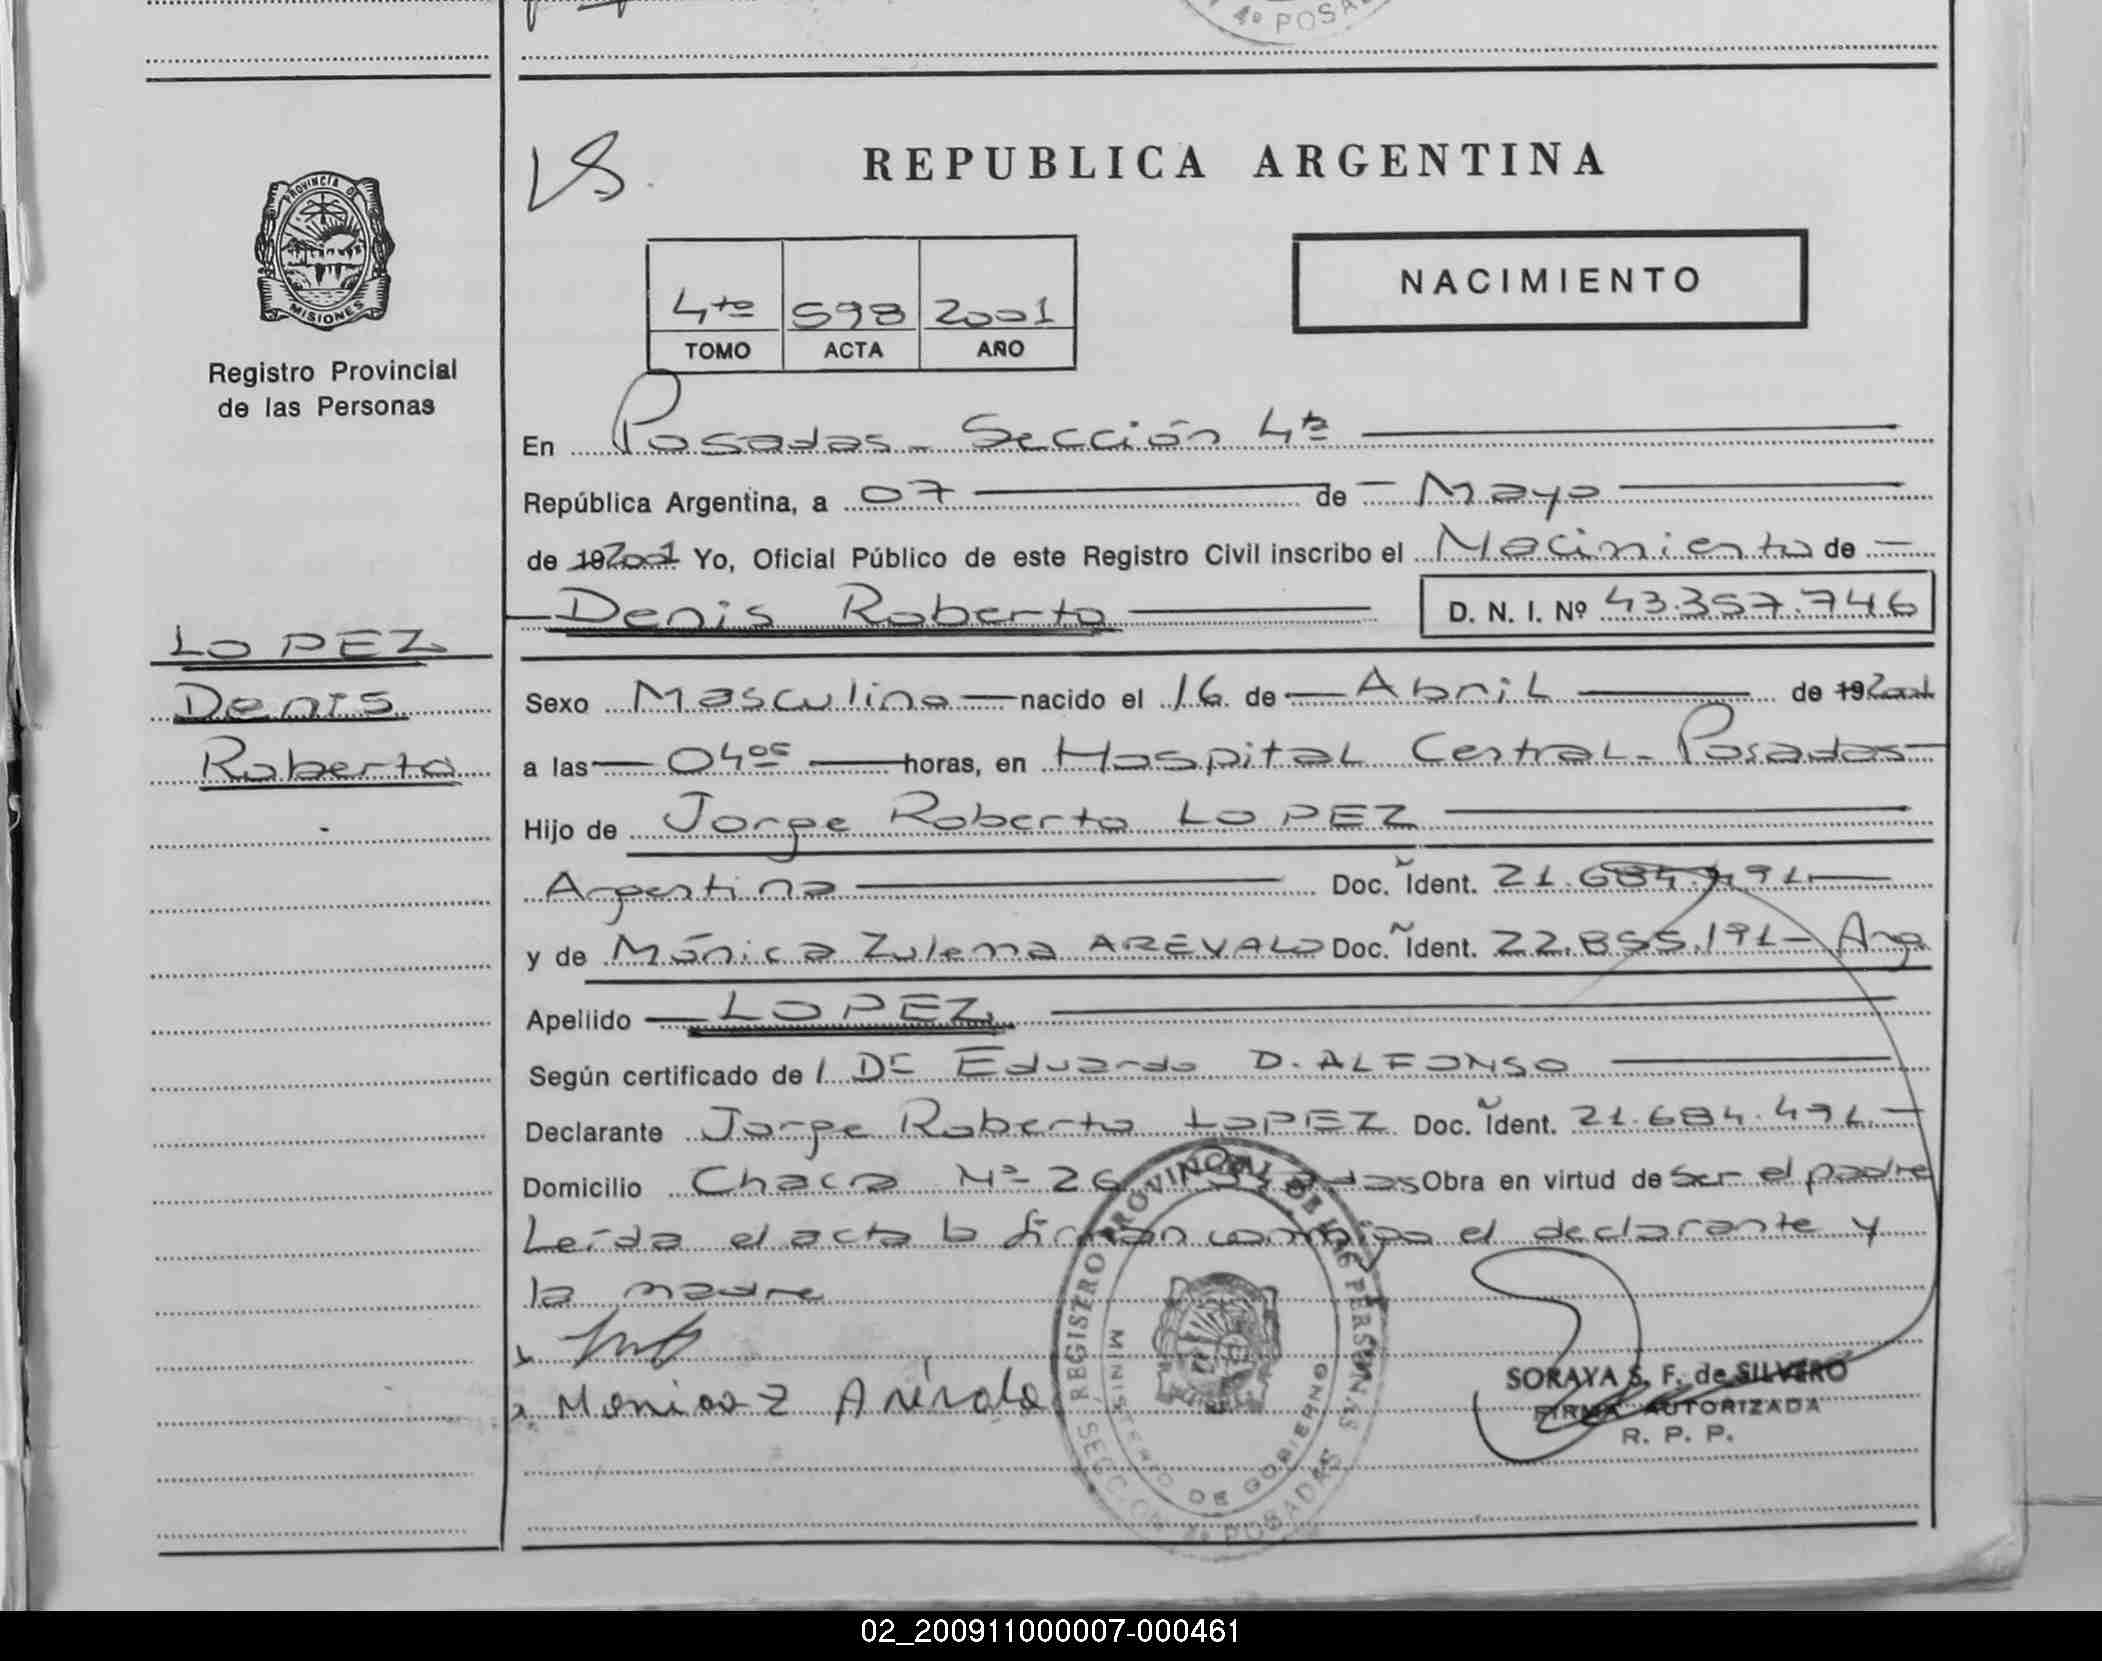 4º POSADAS
REPUBLICA ARGENTINA
PROVINCIA DE
MISIONES
Registro Provincial
de las Personas
NACIMIENTO
4to 598 2001
TOMO ACTA AÑO
En Posadas - Sección 4ta
República Argentina, a 07 de Mayo
de 19 2001 Yo, Oficial Público de este Registro Civil inscribo el Nacimiento de
Denis Roberto D. N. I. Nº 43.357.746
LOPEZ
Denis
Roberto
Sexo Masculino nacido el 16 de Abril de 19 2001
a las 0405 horas, en Hospital Central - Posadas
Hijo de Jorge Roberto LOPEZ
Argentina Doc. Ident. 21.684.491
y de Mónica Zulema AREVALO Doc. Ident. 22.855.191 - Arg
Apellido LOPEZ
Según certificado de l Dr Eduardo D. ALFONSO
Declarante Jorge Roberto LOPEZ Doc. Ident. 21.684.491.-
Domicilio Chacra Nº 26 Posadas Obra en virtud de ser el padre
Leída el acta la firman conmigo el declarante y
la madre
Monica Z Arévalo
REGISTRO PROVINCIAL DE LAS PERSONAS
MINISTERIO DE GOBIERNO
SECCION 4º POSADAS
SORAYA S. F. de SILVERO
FIRMA AUTORIZADA
R. P. P.
02_200911000007-000461